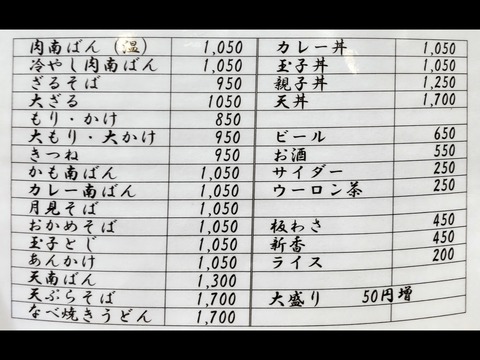 肉南ばん（温） 1,050
冷やし肉南ばん 1,050
ざるそば 950
大ざる 1050
もり・かけ 850
大もり・大かけ 950
きつね 950
かも南ばん 1,050
カレー南ばん 1,050
月見そば 1,050
おかめそば 1,050
玉子とじ 1,050
あんかけ 1,050
天南ばん 1,300
天ぷらそば 1,700
なべ焼きうどん 1,700
カレー丼 1,050
玉子丼 1,050
親子丼 1,250
天丼 1,700
ビール 650
お酒 550
サイダー 250
ウーロン茶 250
板わさ 450
新香 450
ライス 200
大盛り 50円増